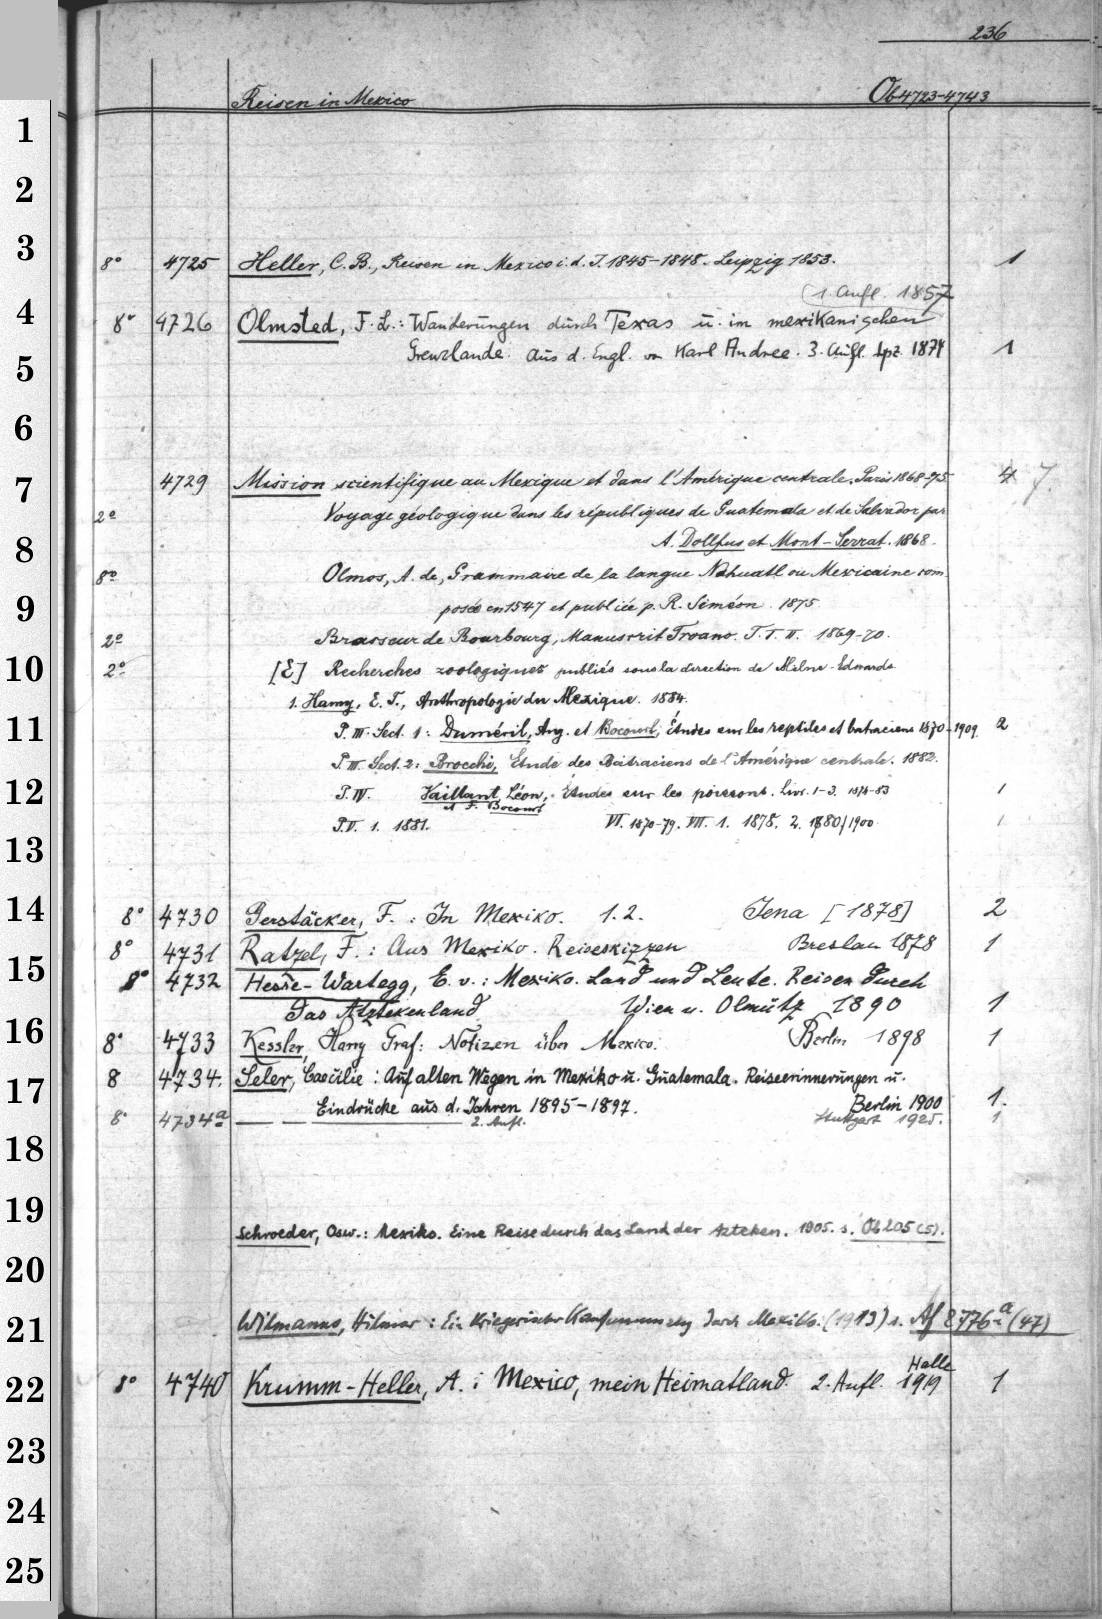 236
Reisen in Mexico Ob 4723-4743
1
2
3
8° 4725 Heller, C. B., Reisen in Mexico i. d. J. 1845-1848. Leipzig 1853. 1
(1. Aufl. 1857
4
8° 4726 Olmsted, F. L.: Wanderungen durch Texas u. im mexikanischen
Grenzlande. Aus d. Engl. von Karl Andree. 3. Aufl. Lpz. 1874 1
5
6
7
4729 Mission scientifique au Mexique et dans l'Amérique centrale. Paris 1868-75. 4 7
2° Voyage géologique dans les républiques de Guatemala et de Salvador par
8
A. Dollfus et Mont-Serrat. 1868.
8° Olmos, A. de, Grammaire de la langue Nahuatl ou Mexicaine com
9
posée en 1547 et publiée p. R. Siméon. 1875
2° Brasseur de Bourbourg, Manuscrit Troano. T. I. II. 1869-70.
10
2° [E] Recherches zoologiques publiés sous la direction de Milne-Edwards
1. Hamy, E. T., Anthropologie du Mexique. 1884.
11
P. III. Sect. 1: Duméril, Aug. et Bocourt, Études sur les reptiles et batraciens 1870-1909. 2
P. III. Sect. 2: Brocchi, Étude des Batraciens de l'Amérique centrale. 1882.
12
P. IV. Vaillant, Léon, Études sur les poissons. Livr. 1-3. 1874-83 1
et F. Bocourt
P. V. 1. 1881. VI. 1870-79. VII. 1. 1878. 2. 1880/1900 1
13
14
8° 4730 Gerstäcker, F.: In Mexiko. 1. 2. Jena [1878] 2
8° 4731 Ratzel, F.: Aus Mexiko. Reiseskizzen Breslau 1878 1
15
8° 4732 Hesse-Wartegg, E. v.: Mexiko. Land und Leute. Reisen durch
das Aztekenland Wien u. Olmütz 1890 1
16
8° 4733 Kessler, Harry Graf: Notizen über Mexico. Berlin 1898 1
17
8 4734. Seler, Caecilie: Auf alten Wegen in Mexiko u. Guatemala. Reiseerinnerungen u.
Eindrücke aus d. Jahren 1895-1897. Berlin 1900 1.
8° 4734a — — 2. Aufl. Stuttgart 1925. 1
18
19
Schroeder, Osw.: Mexiko. Eine Reise durch das Land der Azteken. 1905. s. Ob 205 (5).
20
21
Wilmanns, Hilmar: Ein Kriegerischer durch Mexiko. (1913) s. Af 8776a (47)
22
8° 4740 Krumm-Heller, A.: Mexico, mein Heimatland. 2. Aufl. Halle 1919 1
23
24
25